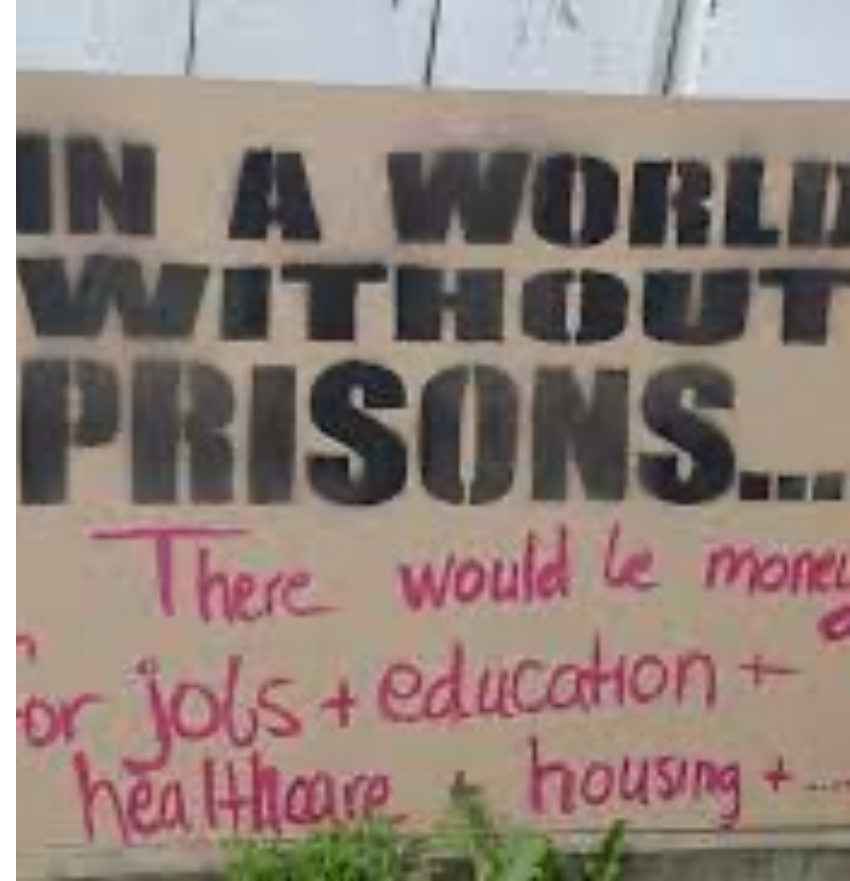 IN A WORLD
WITHOUT
PRISONS...
There would be money
for jobs + education +
healthcare + housing + ....